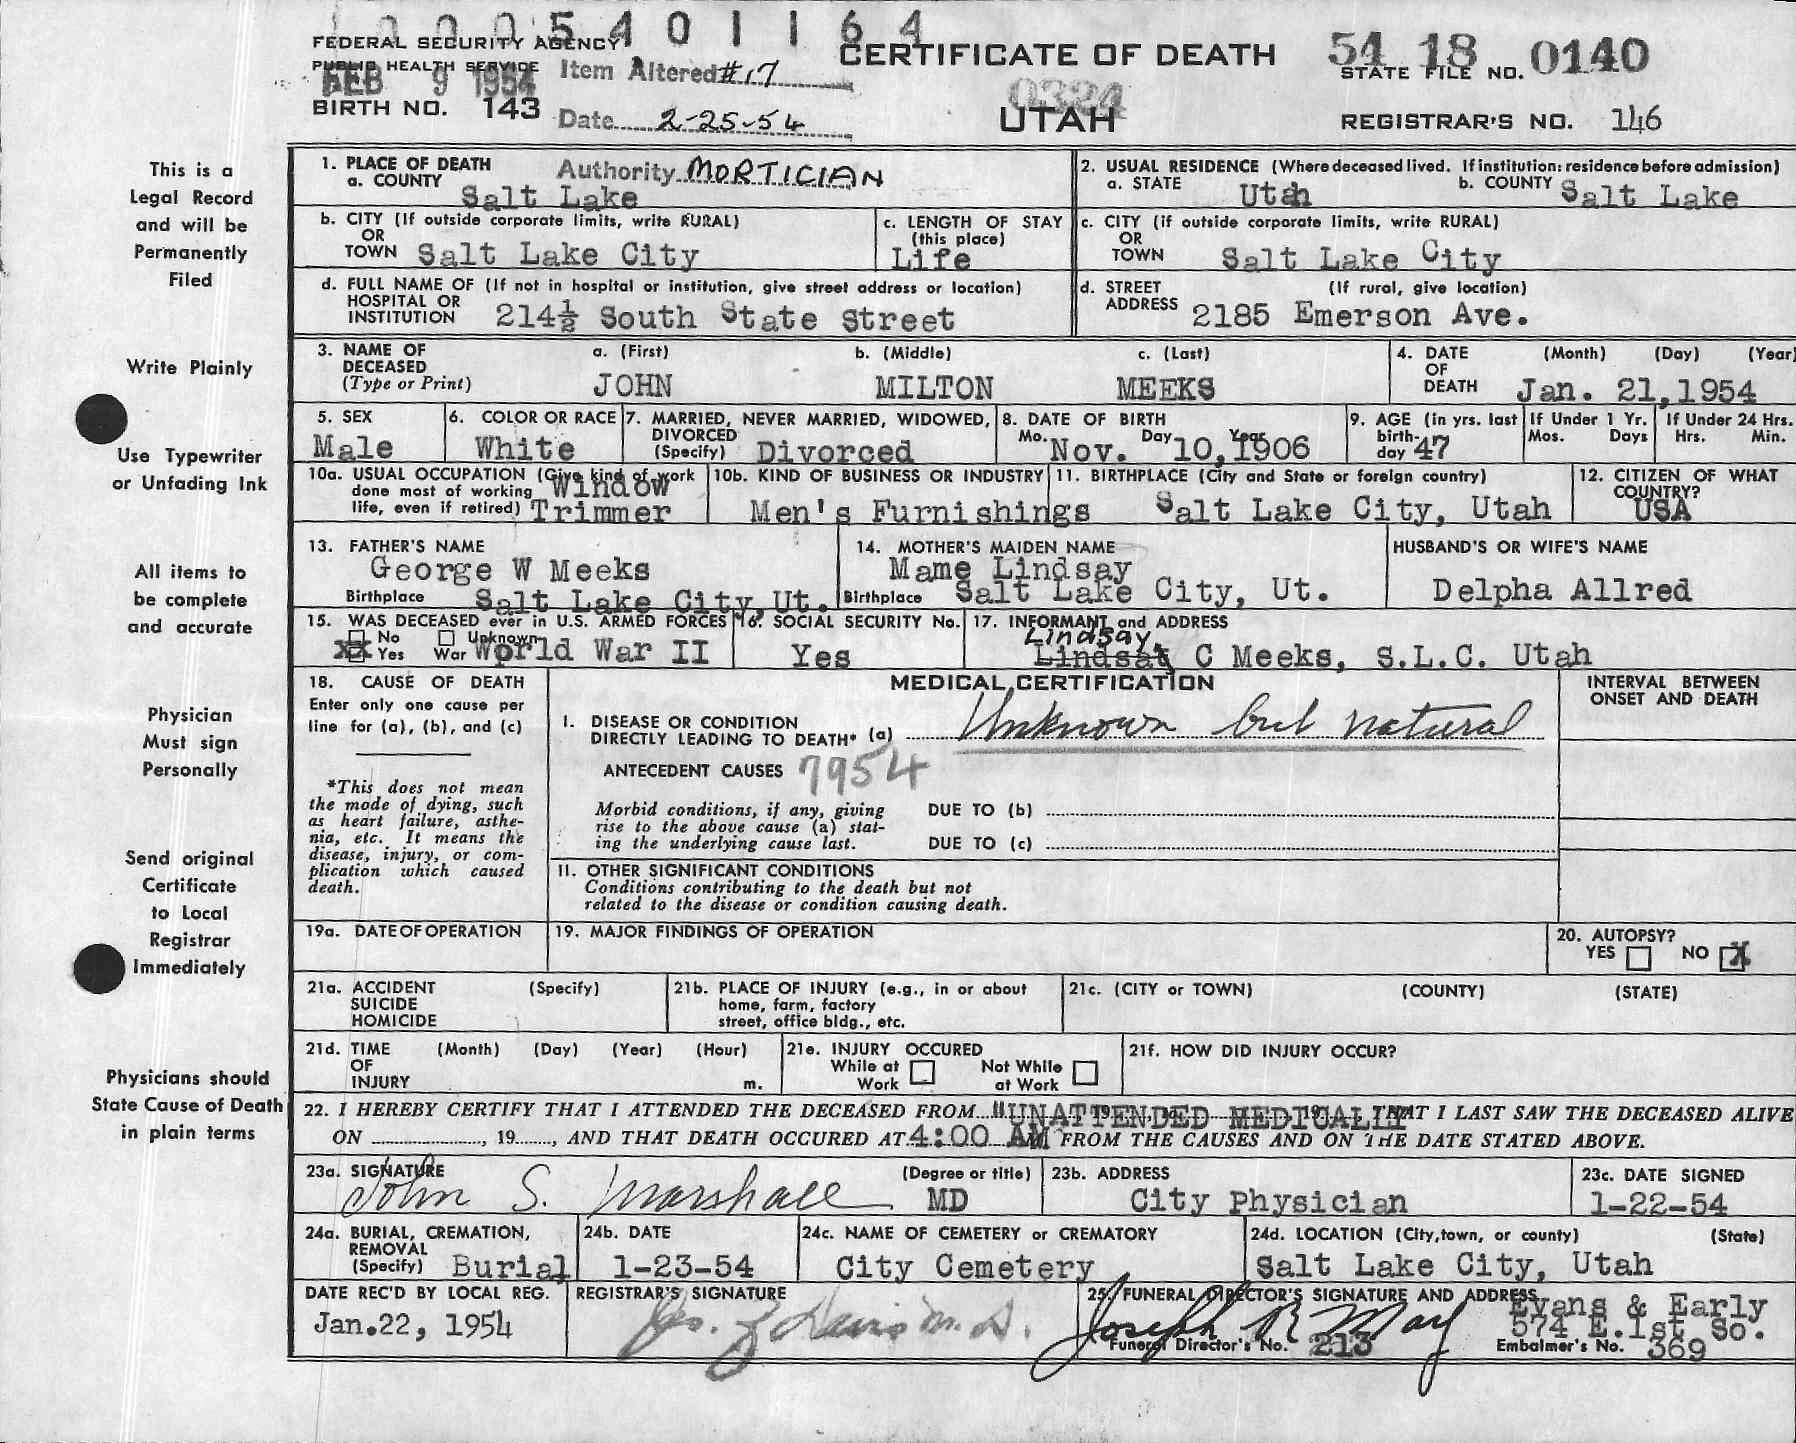 0005401164
FEDERAL SECURITY AGENCY
PUBLIC HEALTH SERVICE
FEB 9 1954
Item Altered #17
CERTIFICATE OF DEATH
54 18 0140
STATE FILE NO.
BIRTH NO. 143
Date 2-25-54
0324
UTAH
REGISTRAR'S NO. 146
This is a
Legal Record
and will be
Permanently
Filed
Write Plainly
Use Typewriter
or Unfading Ink
All items to
be complete
and accurate
Physician
Must sign
Personally
Send original
Certificate
to Local
Registrar
Immediately
Physicians should
State Cause of Death
in plain terms
1. PLACE OF DEATH
a. COUNTY
Salt Lake
Authority MORTICIAN
2. USUAL RESIDENCE (Where deceased lived. If institution: residence before admission)
a. STATE Utah b. COUNTY Salt Lake
b. CITY (If outside corporate limits, write RURAL)
OR
TOWN Salt Lake City
c. LENGTH OF STAY
(this place)
Life
c. CITY (if outside corporate limits, write RURAL)
OR
TOWN Salt Lake City
d. FULL NAME OF (If not in hospital or institution, give street address or location)
HOSPITAL OR
INSTITUTION 214½ South State Street
d. STREET (If rural, give location)
ADDRESS 2185 Emerson Ave.
3. NAME OF
DECEASED
(Type or Print)
a. (First) b. (Middle) c. (Last)
JOHN MILTON MEEKS
4. DATE (Month) (Day) (Year)
OF
DEATH Jan. 21, 1954
5. SEX
Male
6. COLOR OR RACE
White
7. MARRIED, NEVER MARRIED, WIDOWED,
DIVORCED
(Specify) Divorced
8. DATE OF BIRTH
Mo. Day Year
Nov. 10, 1906
9. AGE (in yrs. last
birth-
day 47
If Under 1 Yr.
Mos. Days
If Under 24 Hrs.
Hrs. Min.
10a. USUAL OCCUPATION (Give kind of work
done most of working
life, even if retired)
Window
Trimmer
10b. KIND OF BUSINESS OR INDUSTRY
Men's Furnishings
11. BIRTHPLACE (City and State or foreign country)
Salt Lake City, Utah
12. CITIZEN OF WHAT
COUNTRY?
USA
13. FATHER'S NAME
George W Meeks
Birthplace Salt Lake City, Ut.
14. MOTHER'S MAIDEN NAME
Mame Lindsay
Birthplace Salt Lake City, Ut.
HUSBAND'S OR WIFE'S NAME
Delpha Allred
15. WAS DECEASED ever in U.S. ARMED FORCES
No Unknown
XX Yes War World War II
16. SOCIAL SECURITY No.
Yes
17. INFORMANT and ADDRESS
Lindsay
Lindsat C Meeks, S.L.C. Utah
18. CAUSE OF DEATH
Enter only one cause per
line for (a), (b), and (c)
*This does not mean
the mode of dying, such
as heart failure, asthe-
nia, etc. It means the
disease, injury, or com-
plication which caused
death.
MEDICAL CERTIFICATION
I. DISEASE OR CONDITION
DIRECTLY LEADING TO DEATH* (a) Unknown but natural
ANTECEDENT CAUSES 7954
Morbid conditions, if any, giving
rise to the above cause (a) stat-
ing the underlying cause last.
DUE TO (b)
DUE TO (c)
11. OTHER SIGNIFICANT CONDITIONS
Conditions contributing to the death but not
related to the disease or condition causing death.
INTERVAL BETWEEN
ONSET AND DEATH
19a. DATE OF OPERATION
19. MAJOR FINDINGS OF OPERATION
20. AUTOPSY?
YES NO X
21a. ACCIDENT (Specify)
SUICIDE
HOMICIDE
21b. PLACE OF INJURY (e.g., in or about
home, farm, factory
street, office bldg., etc.
21c. (CITY or TOWN) (COUNTY) (STATE)
21d. TIME (Month) (Day) (Year) (Hour)
OF
INJURY m.
21e. INJURY OCCURED
While at Work
Not While at Work
21f. HOW DID INJURY OCCUR?
22. I HEREBY CERTIFY THAT I ATTENDED THE DECEASED FROM "UNATTENDED MEDICALLY" THAT I LAST SAW THE DECEASED ALIVE
ON , 19 , AND THAT DEATH OCCURED AT 4:00 AM FROM THE CAUSES AND ON THE DATE STATED ABOVE.
23a. SIGNATURE (Degree or title)
John S. Marshall MD
23b. ADDRESS
City Physician
23c. DATE SIGNED
1-22-54
24a. BURIAL, CREMATION,
REMOVAL
(Specify) Burial
24b. DATE
1-23-54
24c. NAME OF CEMETERY or CREMATORY
City Cemetery
24d. LOCATION (City, town, or county) (State)
Salt Lake City, Utah
DATE REC'D BY LOCAL REG.
Jan. 22, 1954
REGISTRAR'S SIGNATURE
M.D.
25. FUNERAL DIRECTOR'S SIGNATURE AND ADDRESS
Joseph R May
Evans & Early
574 E. 1st So.
Funeral Director's No. 213
Embalmer's No. 369